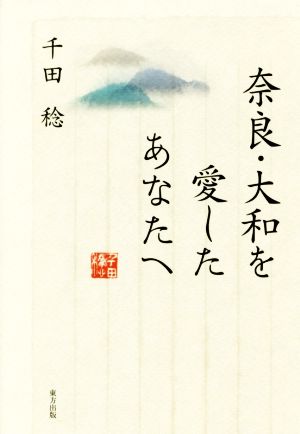 奈良・大和を
愛した
あなたへ
千田 稔
東方出版